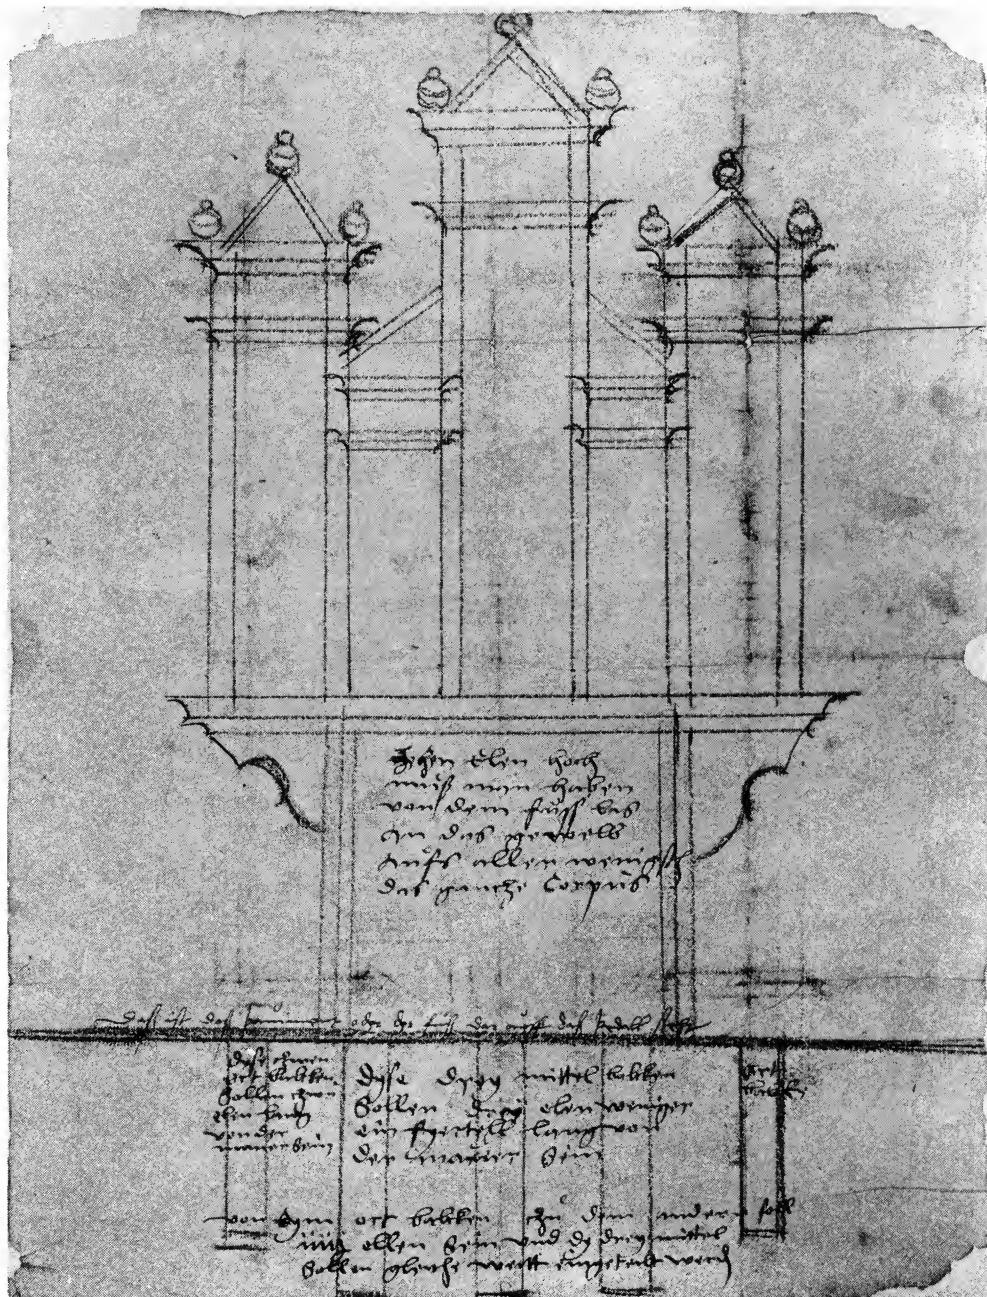 zehen Elen hoch
muß man haben
von dem fuss bis
an das gewelb
aufs allen wenigsch
das gancze Corpus
dass ist das oder der fuss dar auff das steht
dyse zwen
ort balcken
Sollen zwen
elen lang
von der
mauer sein
dyse drey mittel balcken
Sollen drey elen weniger
ein fyertell lang von
der mauer sein
ort
balcken
von eym ort balcken zu dem andern soll
ellen sein und dy drey mittel
Sollen gleyche weitt eingeteilt werden